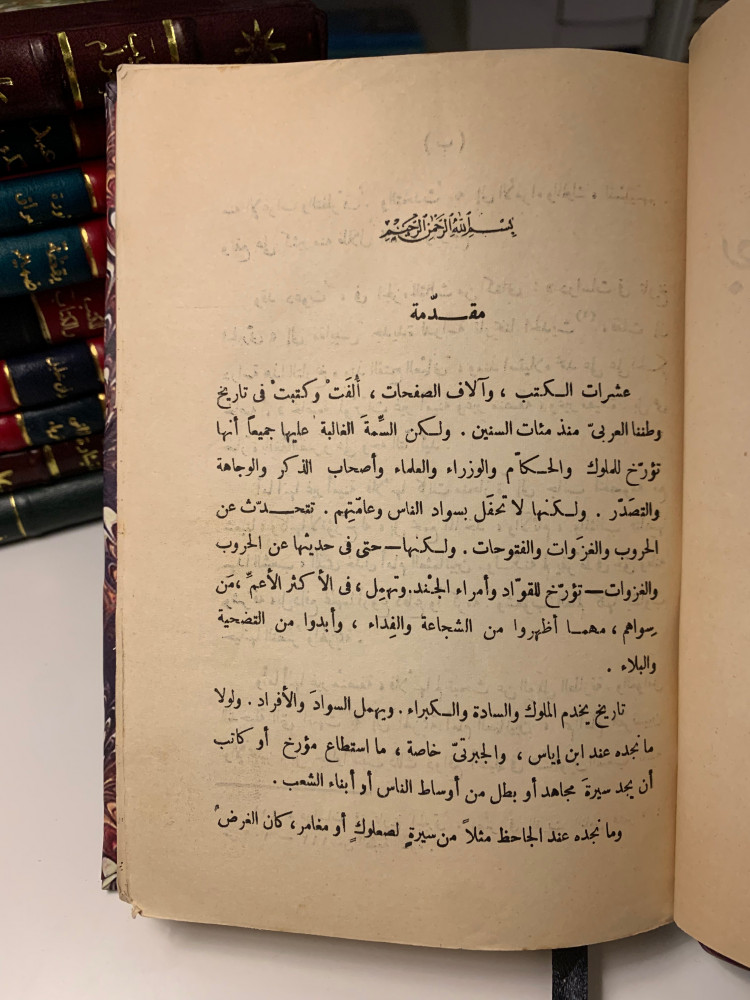 بسم الله الرحمن الرحيم
مقدّمة
عشرات الكتب ، وآلاف الصفحات ، أُلفَتْ وكتبتْ فى تاريخ
وطننا العربىّ منذ مئات السنين . ولكن السِّمةَ الغالبة عليها جميعاً أنها
تؤرّخ للملوك والحكاّم والوزراء والعلماء وأصحاب الذكر والوجاهة
والتصَدّر . ولكنها لا تحفَل بسواد الناس وعامّتِهم . تتحدّث عن
الحروب والغزَوات والفتوحات . ولكنها — حتى فى حديثها عن الحروب
والغزوات — تؤرّخ للقوّاد وأمراء الجنْد. وتهمِل ، فى الأكثر الأعمِّ ، مَن
سِواهم ، مهما أظهروا من الشجاعة والفِداء ، وأبدوا من التضحية
والبلاء .
تاريخ يخدم الملوك والسادة والكبراء . ويهمل السوادَ والأفراد . ولولا
ما نجده عند ابن إياس ، والجبرتىّ خاصة ، ما استطاع مؤرخ أو كاتب
أن يجد سيرةَ مجاهد أو بطل من أوساط الناس أو أبناء الشعب .
وما نجده عند الجاحظ مثلاً من سيرةٍ لصعلوكٍ أو مغامر ، كان الغرضُ